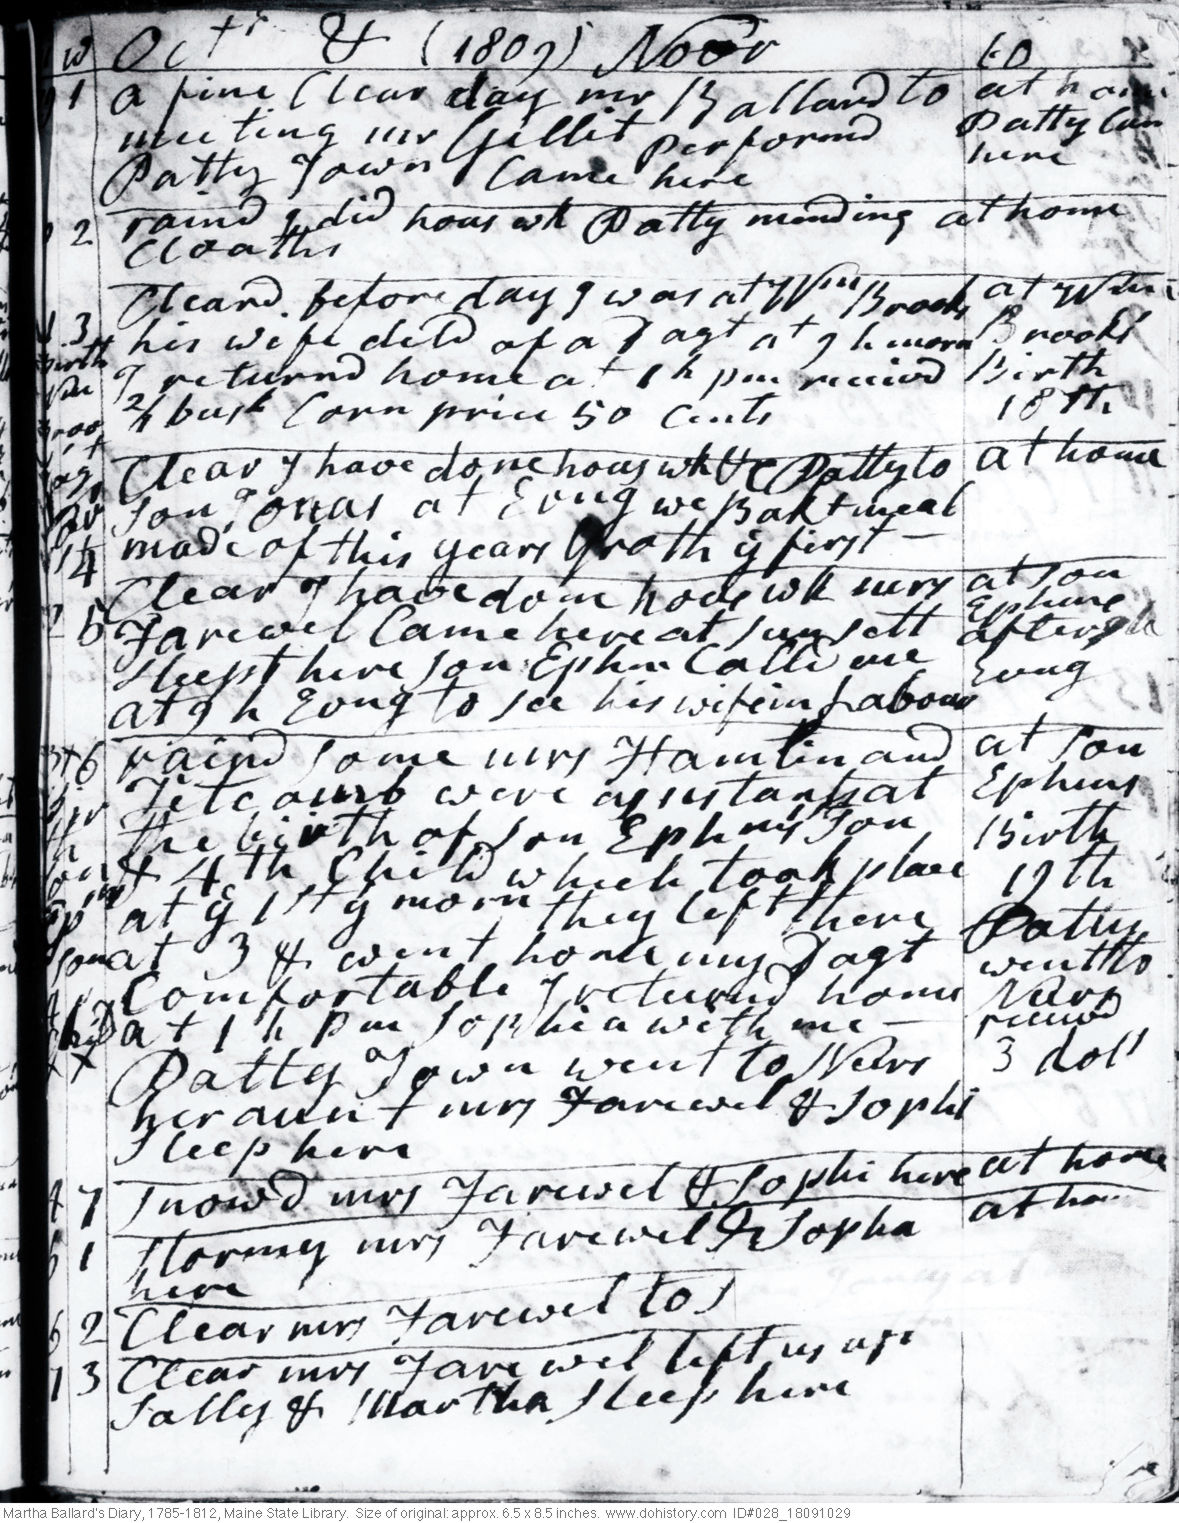 w Oct & (1809) Novr 60
1 a fine Clear day mr Ballard to at home
meeting mr Gillit performd Patty Cam
Patty Town Came here here
2 raind I did hous wk Patty mending at home
Cloaths
Cleard before day I was at Wm Brooks at Wm
3 his wife deld of a Dagt at 9 h morn Brooks
I returnd home at 1 h pm receivd Birth
2/4 bush Corn price 50 Cents 18th
Clear I have done hous wk & C Patty to at home
son Jonas at Evng we Bakt meal
4 made of this years Groth ye first —
Clear I have done hous wk mrs at son
5 Farewel Came here at sunsett Ephms
sleept here son Ephm Calld me after 9 h
at 9 h Evng to see his wife in Labour Evng
6 raind some mrs Hamlin and at son
Titcomb were assistants at Ephms
the birth of son Ephms son Birth
& 4th Child which took place 19th
at ye 1st h morn they left there Patty
at 3 & went home my Dagt went to
Comfortable I returnd home Nevrs
at 1 h pm Sophia with me — receivd
Patty Town went to Nevrs 3 doll
her aunt mrs Farewel & Sophi
sleep here
4 7 Snowd mrs Farewel & Sophi here at home
1 stormy mrs Farewel & Sopha at ho
here
6 2 Clear mrs Farewel to S
1 3 Clear mrs Farewel left us
Sally & Martha sleep here
Martha Ballard's Diary, 1785-1812, Maine State Library. Size of original: approx. 6.5 x 8.5 inches. www.dohistory.com ID#028_18091029